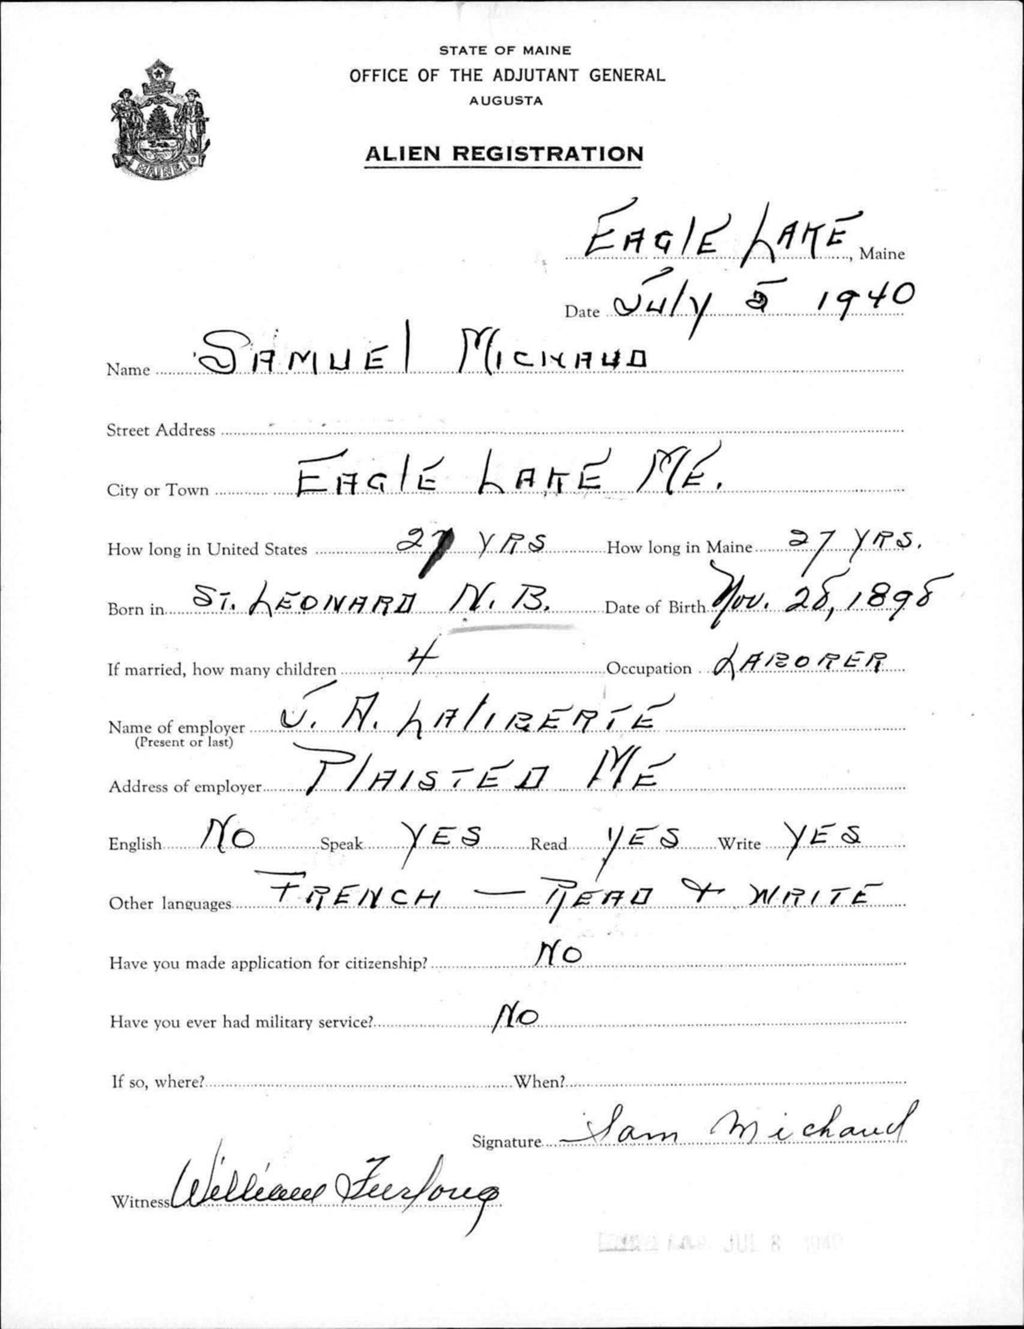 STATE OF MAINE
OFFICE OF THE ADJUTANT GENERAL
AUGUSTA
ALIEN REGISTRATION
MAINE
EAGlE LAKE, Maine
Date July 5 1940
Name SAMUEl MICHAUD
Street Address
City or Town EAGlE LAKE ME.
How long in United States 27 YRS How long in Maine 27 YRS.
Born in ST. LEONARD N.B. Date of Birth Nov. 28, 1898
If married, how many children 4 Occupation LABORER
Name of employer J. A. LAlIBERTE
(Present or last)
Address of employer PlAISTED ME
English No Speak YES Read YES Write YES
Other languages FRENCH — READ + WRITE
Have you made application for citizenship? No
Have you ever had military service? No
If so, where? When?
Signature Sam Michaud
Witness William Furlong
JUL 8 1940